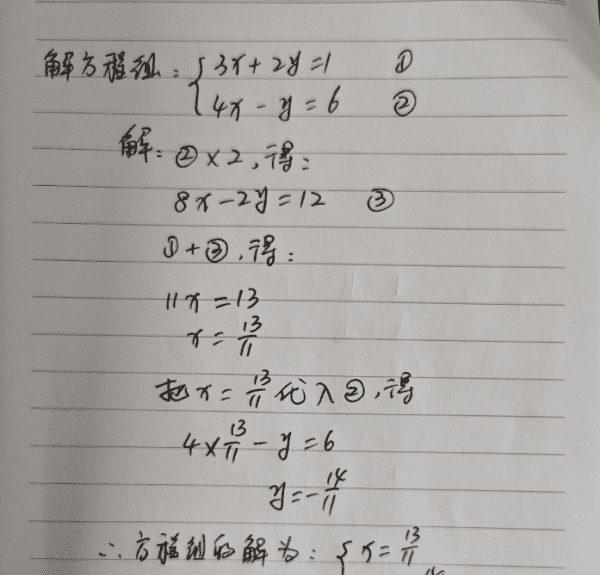 解方程组: { 3x+2y=1 ①
4x-y=6 ②
解: ②×2,得:
8x-2y=12 ③
①+③,得:
11x=13
x=13/11
把x=13/11代入②,得
4×13/11-y=6
y=-14/11
∴方程组的解为: { x=13/11